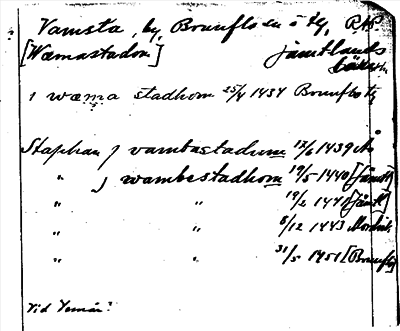 Vamsta, by, Brunflo sn o tg, RAP
[Wæmastadom] Jämtlands
läns
i wæma stadhom 25/4 1437 Brunflo tg
Staphan j vambastadum 12/6 1439 Ås
" j wambestadhom 19/5 1440 [Jämtl]
" " 19/2 1441 [Jämtl]
" " 5/12 1443
" " 31/5 1451 [Brunflo]
Vid